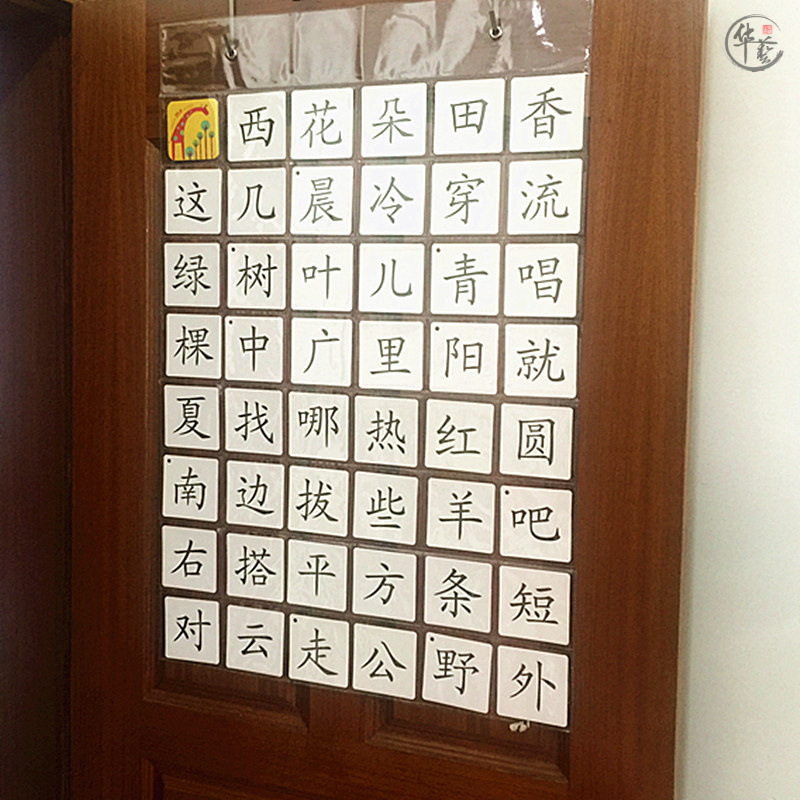 华艺
西 花 朵 田 香
这 几 晨 冷 穿 流
绿 树 叶 儿 青 唱
棵 中 广 里 阳 就
夏 找 哪 热 红 圆
南 边 拔 些 羊 吧
右 搭 平 方 条 短
对 云 走 公 野 外